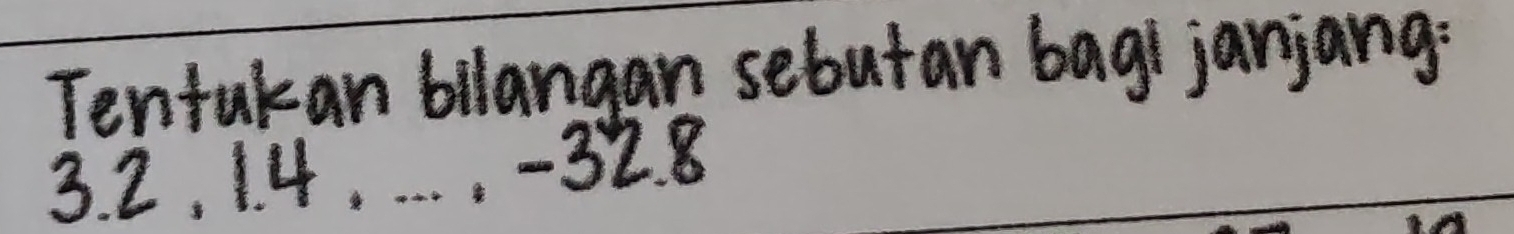 Tentukan bilangan sebutan bagi janjang:
3.2, 1.4, ..., -32.8